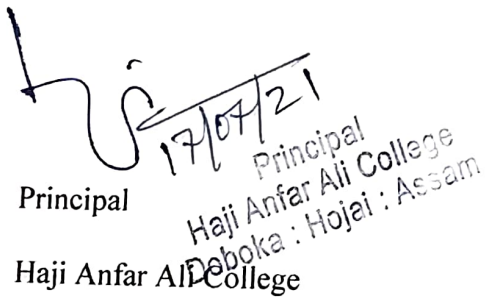 17/07/21
Principal
Haji Anfar Ali College
Doboka : Hojai : Assam
Principal
Haji Anfar Ali College